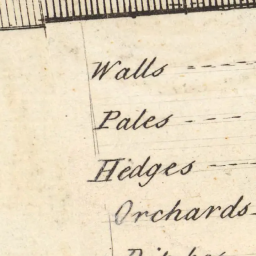 Walls
Pales
Hedges
Orchards